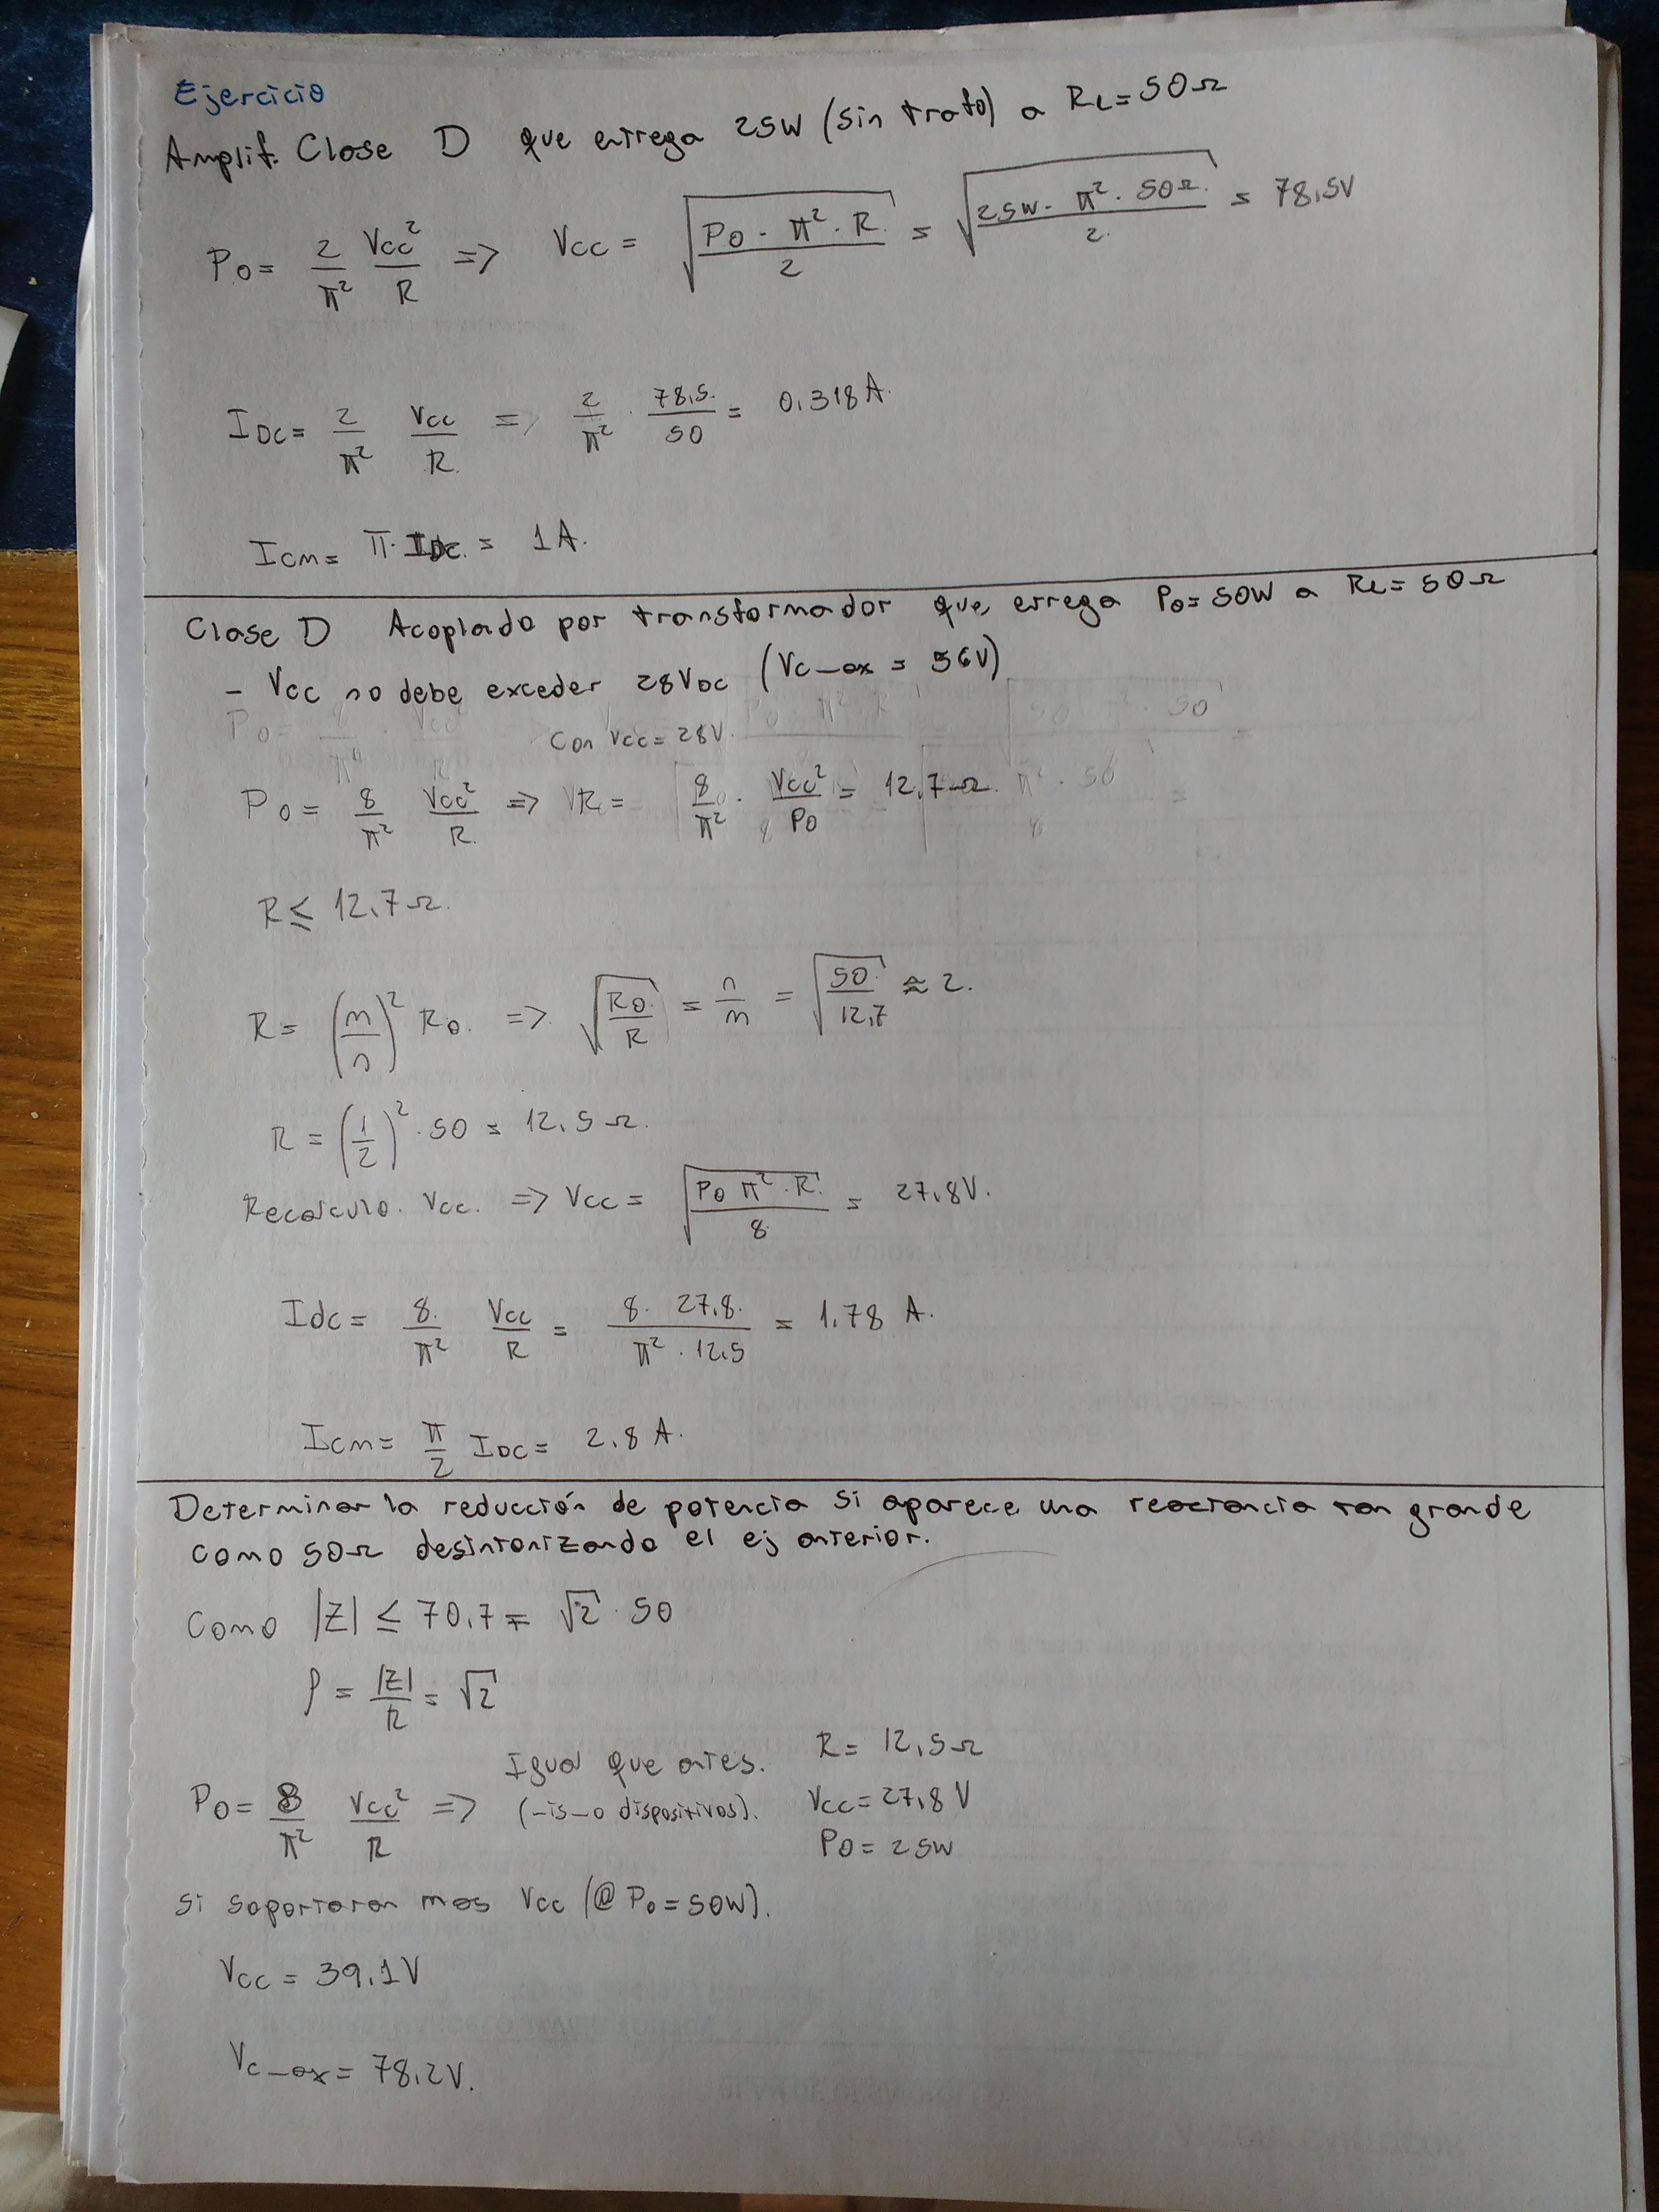 Ejercicio
Amplif. Clase D que entrega 25W (sin trafo) a RL=50Ω
Po = 2/π² Vcc²/R => Vcc = √(Po · π² · R / 2) = √(25W · π² · 50Ω / 2) = 78,5V
IDC = 2/π² Vcc/R => 2/π² · 78,5/50 = 0,318A.
Icm = π · IDC = 1A.
Clase D Acoplado por transformador que errega Po=50W a RL=50Ω
- Vcc no debe exceder 28VDC (Vcmax = 56V)
Con Vcc=28V.
Po = 8/π² Vcc²/R => R = 8/π² · Vcc²/Po = 12,7Ω.
R ≤ 12,7Ω.
R = (m/n)² Ro. => √(Ro/R) = n/m = √(50/12,7) ≈ 2.
R = (1/2)² · 50 = 12,5Ω.
Recalculo. Vcc. => Vcc = √(Po π² · R / 8) = 27,8V.
Idc = 8/π² Vcc/R = 8 · 27,8 / π² · 12,5 = 1,78 A.
Icm = π/2 IDC = 2,8 A.
Determinar la reducción de potencia si aparece una reactancia tan grande
como 50Ω desintonizando el ej anterior.
Como |Z| ≤ 70,7 = √2 · 50
ρ = |Z|/R = √2
Po = 8/π² Vcc²/R => Igual que antes. (mismo dispositivos). R = 12,5Ω
Vcc = 27,8 V
Po = 25W
si soportaran mas Vcc (@ Po=50W).
Vcc = 39,1V
Vcmax = 78,2V.